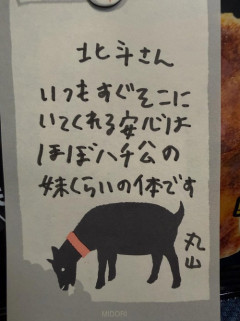 北斗さん
いつもすぐそこに
いてくれる安心は
ほぼハチ公の
妹くらいの体です
丸山
MIDORI